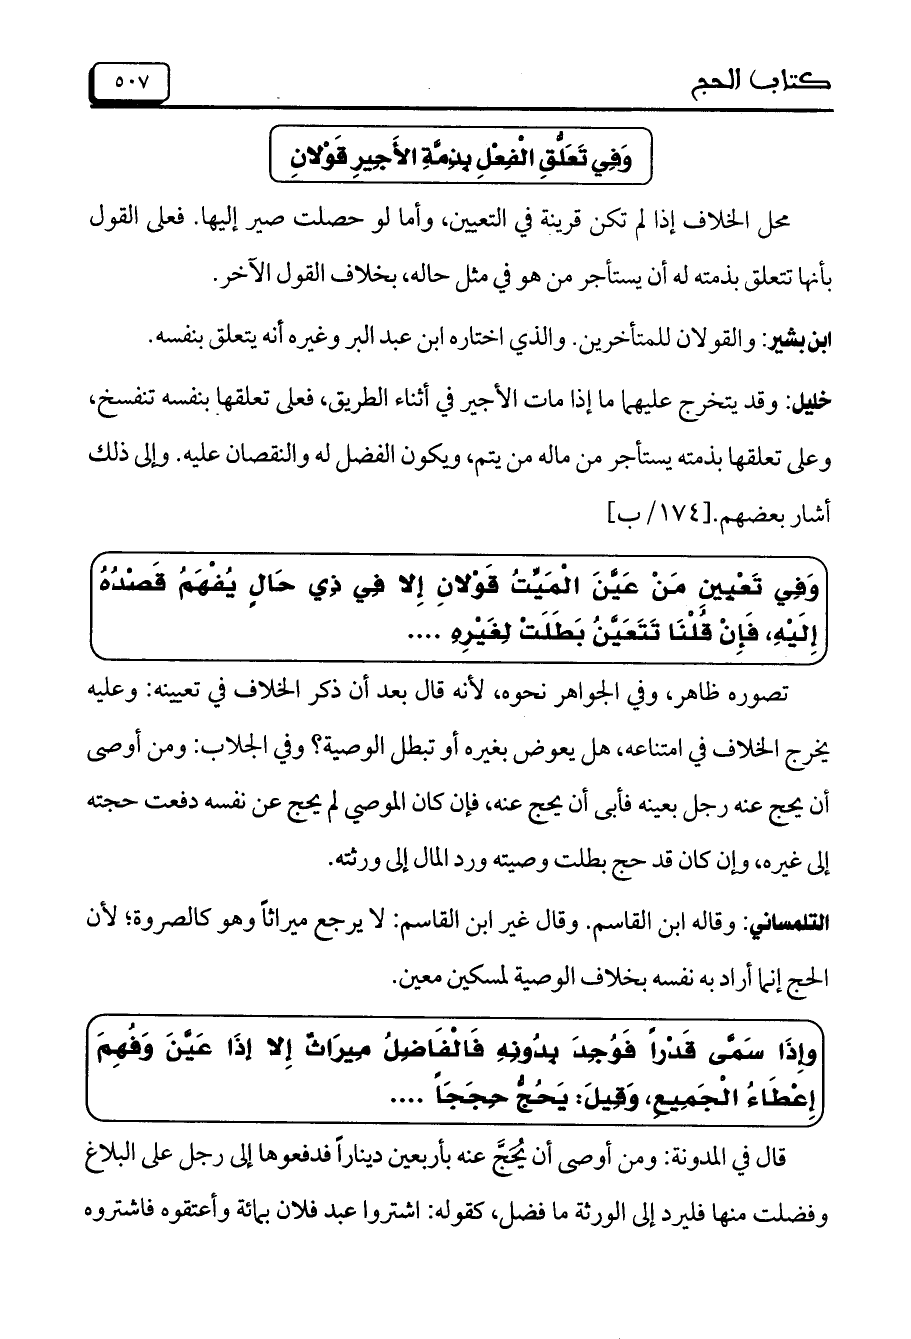 كتاب الحج
٥٠٧
وَفِي تَعَلُّقِ الْفِعْلِ بِذِمَّةِ الأَجِيرِ قَوْلانِ
محل الخلاف إذا لم تكن قرينة في التعيين، وأما لو حصلت صير إليها. فعلى القول
بأنها تتعلق بذمته له أن يستأجر من هو في مثل حاله، بخلاف القول الآخر.
ابن بشير: والقولان للمتأخرين. والذي اختاره ابن عبد البر وغيره أنه يتعلق بنفسه.
خليل: وقد يتخرج عليهما ما إذا مات الأجير في أثناء الطريق، فعلى تعلقها بنفسه تنفسخ،
وعلى تعلقها بذمته يستأجر من ماله من يتم، ويكون الفضل له والنقصان عليه. وإلى ذلك
أشار بعضهم.[١٧٤/ ب]
وَفِي تَعْيِينِ مَنْ عَيَّنَ الْمَيِّتُ قَوْلانِ إِلا فِي ذِي حَالٍ يُفْهَمُ قَصْدُهُ
إِلَيْهِ، فَإِنْ قُلْنَا تَتَعَيَّنُ بَطَلَتْ لِغَيْرِهِ ....
تصوره ظاهر، وفي الجواهر نحوه، لأنه قال بعد أن ذكر الخلاف في تعيينه: وعليه
يخرج الخلاف في امتناعه، هل يعوض بغيره أو تبطل الوصية؟ وفي الجلاب: ومن أوصى
أن يحج عنه رجل بعينه فأبى أن يحج عنه، فإن كان الموصي لم يحج عن نفسه دفعت حجته
إلى غيره، وإن كان قد حج بطلت وصيته ورد المال إلى ورثته.
التلمساني: وقاله ابن القاسم. وقال غير ابن القاسم: لا يرجع ميراثاً وهو كالصروة؛ لأن
الحج إنما أراد به نفسه بخلاف الوصية لمسكين معين.
وإِذَا سَمَّى قَدْراً فَوُجِدَ بِدُونِهِ فَالْفَاضِلُ مِيرَاثٌ إِلا إِذَا عَيَّنَ وَفُهِمَ
إِعْطَاءُ الْجَمِيعِ، وَقِيلَ: يَحُجُّ حِجَجَاً ....
قال في المدونة: ومن أوصى أن يُحَجَّ عنه بأربعين ديناراً فدفعوها إلى رجل على البلاغ
وفضلت منها فليرد إلى الورثة ما فضل، كقوله: اشتروا عبد فلان بمائة وأعتقوه فاشتروه